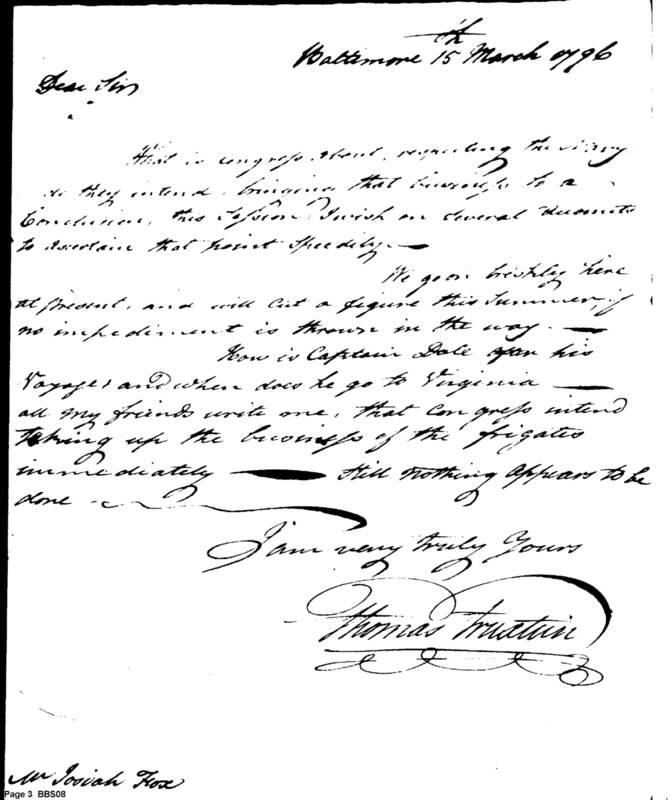 Baltimore 15th March 1796
Dear Sir
What is congress about, respecting the Navy
do they intend bringing that business to a
Conclusion, this Session I wish on several Accounts
to ascertain that point Speedily.—
We go on briskly here
at present, and will Cut a figure this Summer, if
no impediment is thrown in the way.—
How is Captain Dale after his
Voyage, and when does he go to Virginia —
all my friends write me, that Congress intend
taking up the business of the frigates
immediately — Still nothing appears to be
done —
I am very truly Yours
Thomas Truxtun
Mr Josiah Fox
Page 3 BBS08